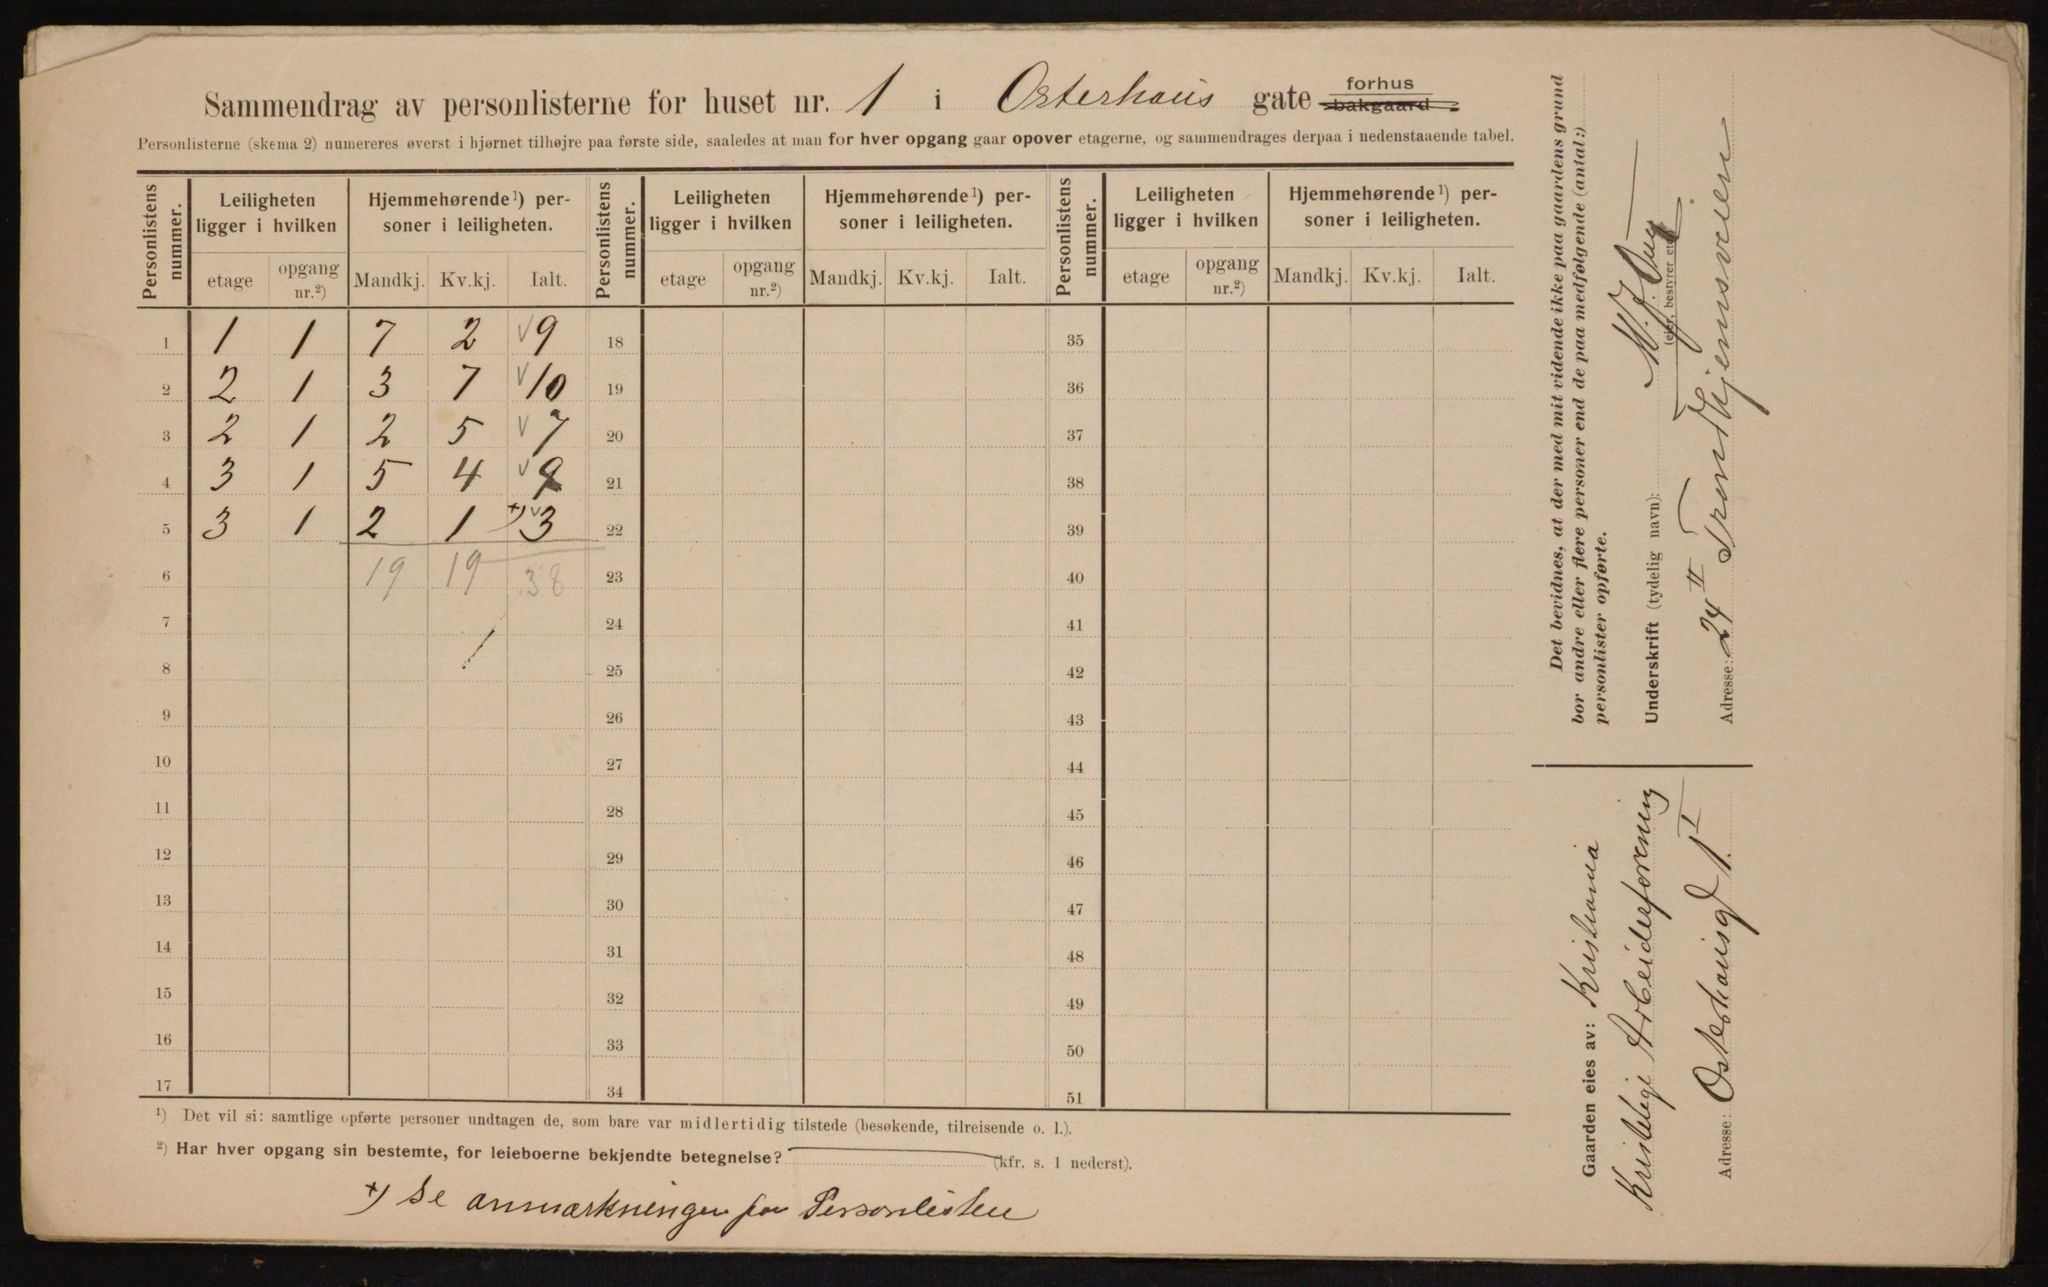 Sammendrag av personlisterne for huset nr. 1 i Osterhaus gate forhus bakgaard
Personlisterne (skema 2) numereres øverst i hjørnet tilhøjre paa første side, saaledes at man for hver opgang gaar opover etagerne, og sammendrages derpaa i nedenstaaende tabel.
Personlistens nummer. Leiligheten ligger i hvilken Hjemmehørende¹) personer i leiligheten. Personlistens nummer. Leiligheten ligger i hvilken Hjemmehørende¹) personer i leiligheten. Personlistens nummer. Leiligheten ligger i hvilken Hjemmehørende¹) personer i leiligheten.
etage opgang nr.²) Mandkj. Kv.kj. Ialt. etage opgang nr.²) Mandkj. Kv.kj. Ialt. etage opgang nr.²) Mandkj. Kv.kj. Ialt.
1 1 1 7 2 √9 18 35
2 2 1 3 7 √10 19 36
3 2 1 2 5 √7 20 37
4 3 1 5 4 √9 21 38
5 3 1 2 1 +) √3 22 39
6 19 19 38 23 40
7 24 41
8 25 42
9 26 43
10 27 44
11 28 45
12 29 46
13 30 47
14 31 48
15 32 49
16 33 50
17 34 51
¹) Det vil si: samtlige opførte personer undtagen de, som bare var midlertidig tilstede (besøkende, tilreisende o. l.).
²) Har hver opgang sin bestemte, for leieboerne bekjendte betegnelse? (kfr. s. 1 nederst).
+) Se anmærkningen paa Personlisten
Det bevidnes, at der med mit vidende ikke paa gaardens grund
bor andre eller flere personer end de paa medfølgende (antal:)
personlister opførte.
Underskrift (tydelig navn):
(eier, bestyrer etc.)
Adresse: 24 II Trondhjemsveien
Gaarden eies av: Kristiania
Kristelige Arbeiderforening
Adresse: Osterhausgt 1 I